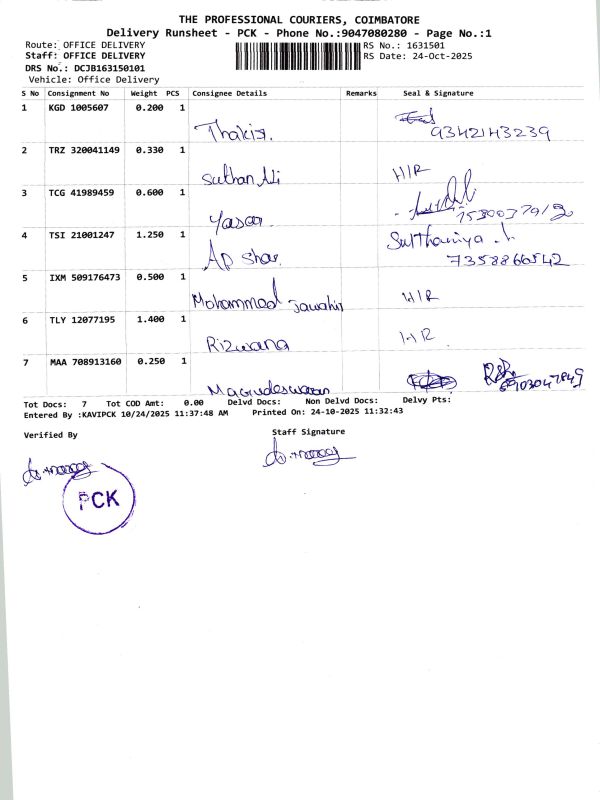 THE PROFESSIONAL COURIERS, COIMBATORE
Delivery Runsheet - PCK - Phone No.:9047080280 - Page No.:1
Route: OFFICE DELIVERY RS No.: 1631501
Staff: OFFICE DELIVERY RS Date: 24-Oct-2025
DRS No.: DCJB163150101
Vehicle: Office Delivery
S No Consignment No Weight PCS Consignee Details Remarks Seal & Signature
1 KGD 1005607 0.200 1
Thakir. 9342143239
2 TRZ 320041149 0.330 1
Sulthan Ali H/R
3 TCG 41989459 0.600 1
Yasar.
4 TSI 21001247 1.250 1 Sulthaniya
AP Shar. 7358866542
5 IXM 509176473 0.500 1
Mohammad Jawahir H/R
6 TLY 12077195 1.400 1
Rizwana H/R
7 MAA 708913160 0.250 1
Magudeswaran
Tot Docs: 7 Tot COD Amt: 0.00 Delvd Docs: Non Delvd Docs: Delvy Pts:
Entered By :KAVIPCK 10/24/2025 11:37:48 AM Printed On: 24-10-2025 11:32:43
Verified By Staff Signature
PCK